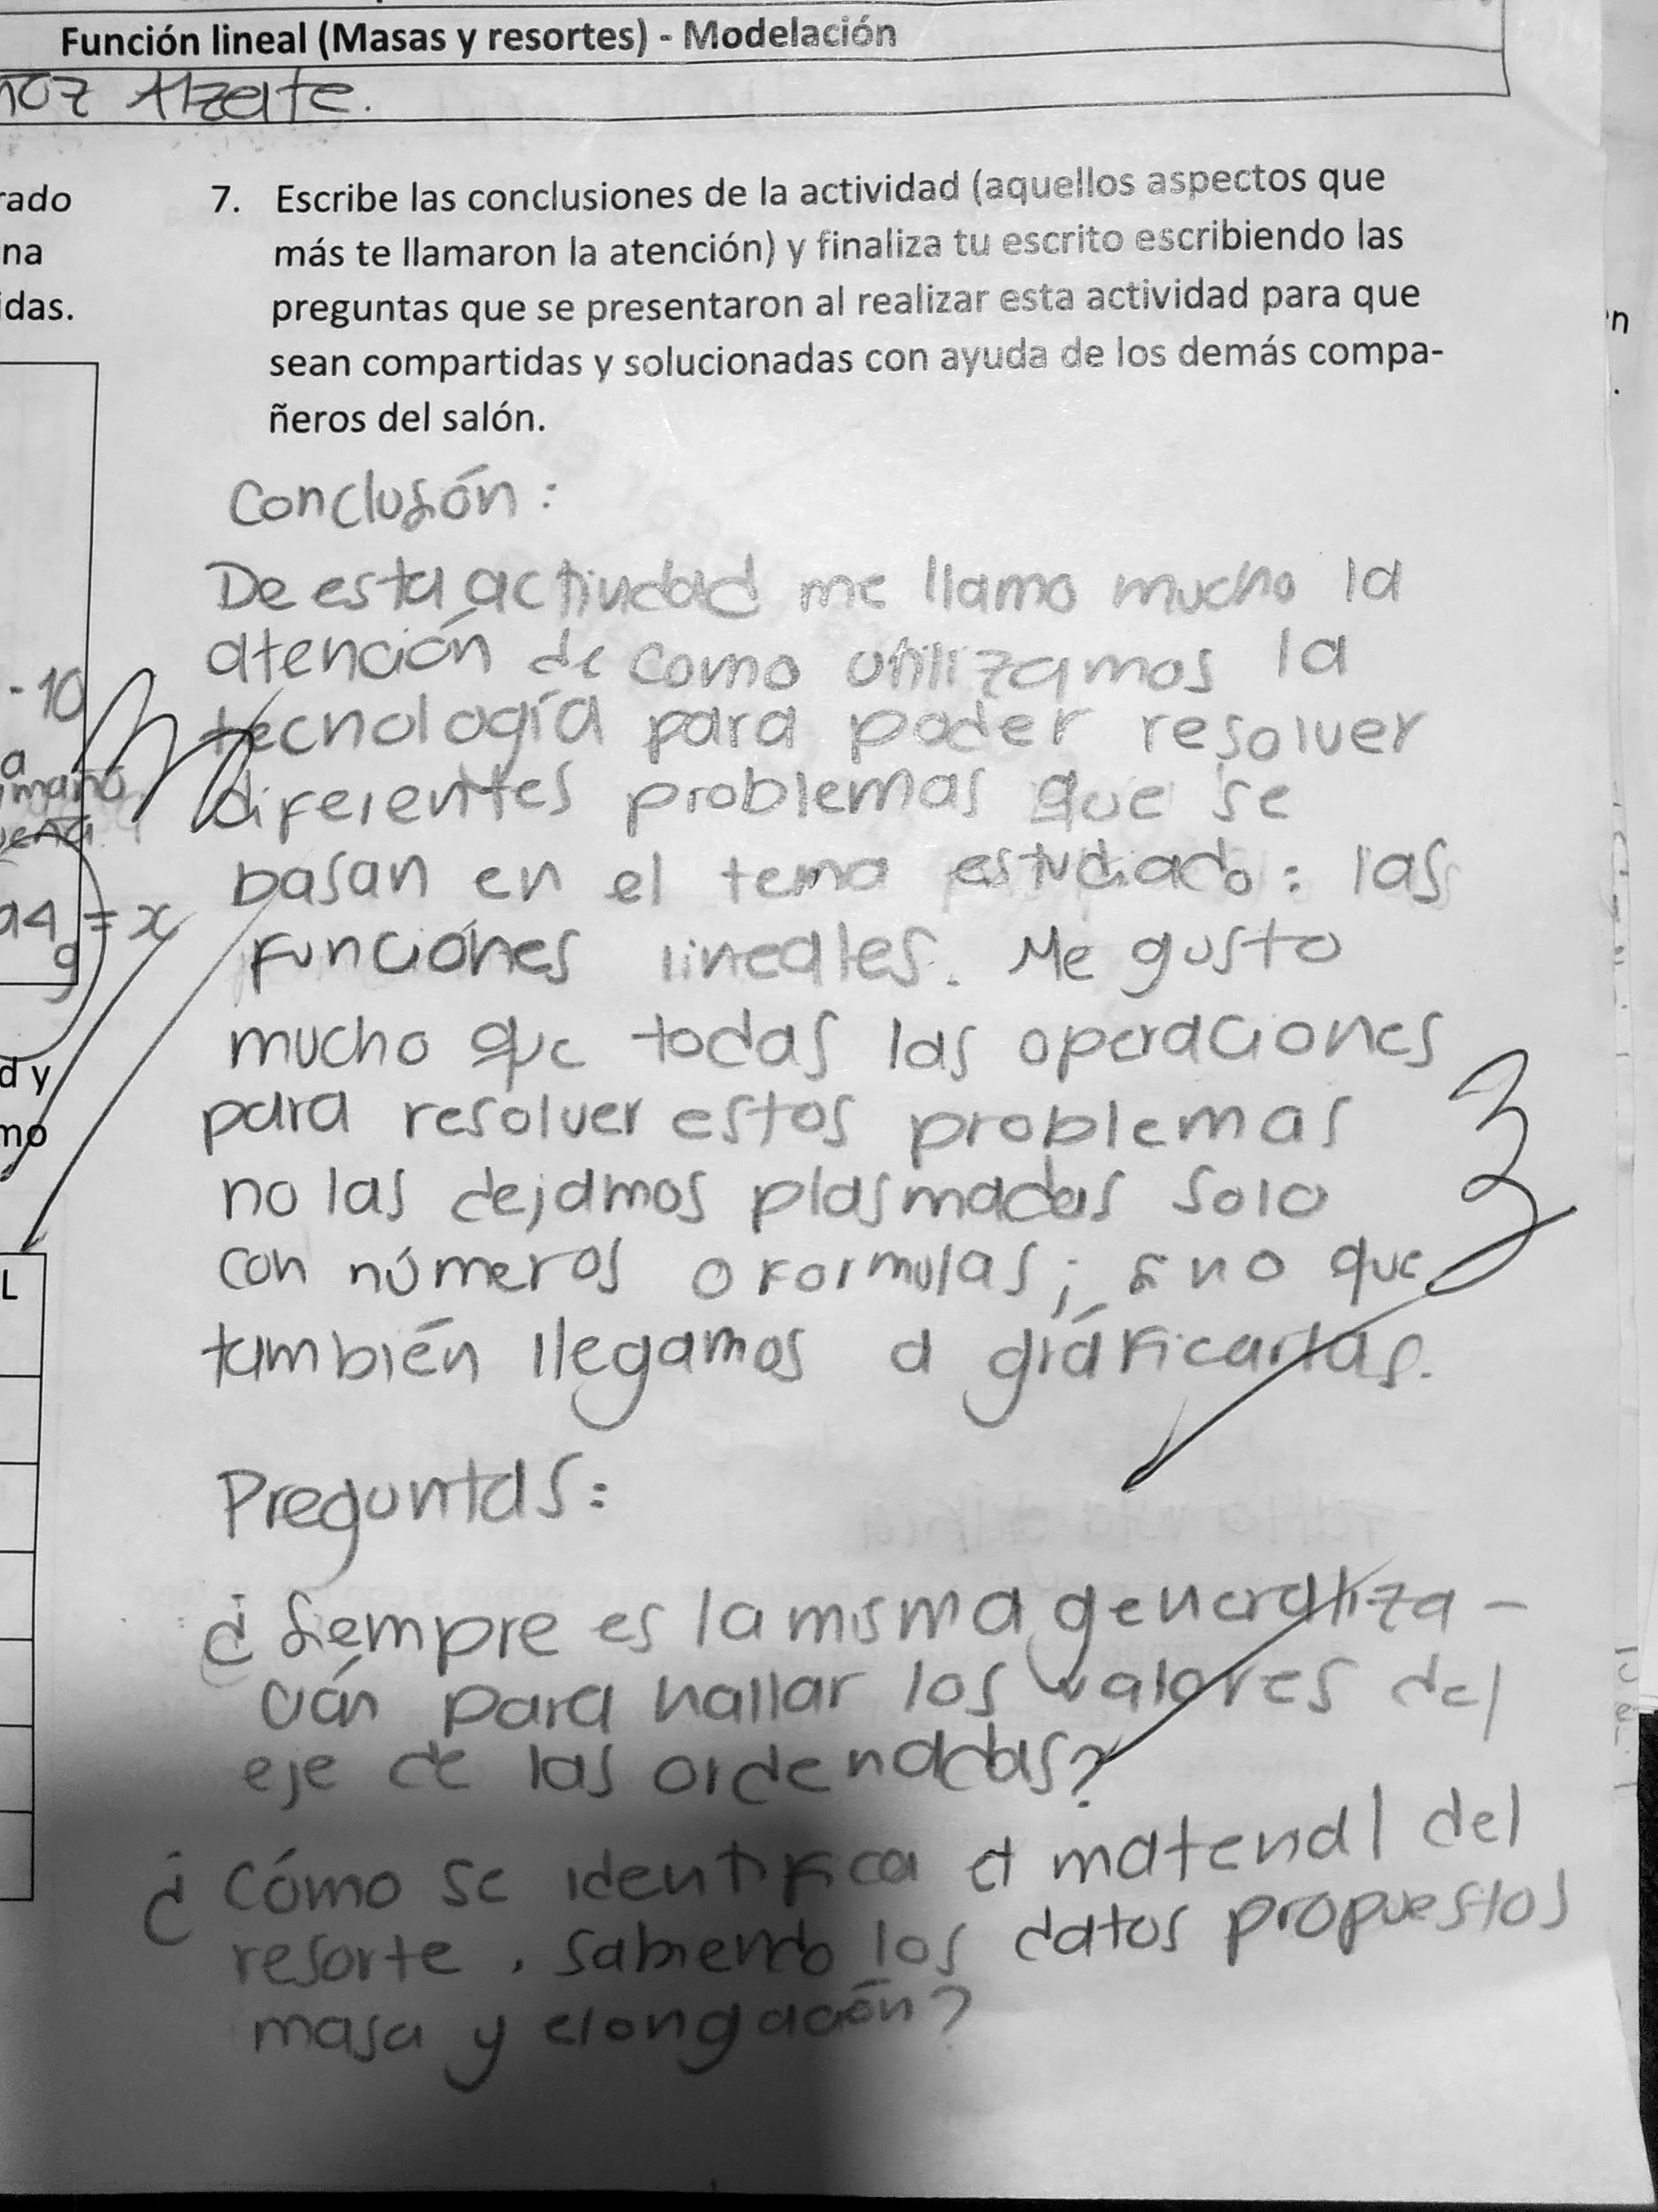 Función lineal (Masas y resortes) - Modelación
ñoz Alzate.
rado
na
idas.
7. Escribe las conclusiones de la actividad (aquellos aspectos que
más te llamaron la atención) y finaliza tu escrito escribiendo las
preguntas que se presentaron al realizar esta actividad para que
sean compartidas y solucionadas con ayuda de los demás compa-
ñeros del salón.
Conclusón:
De esta actividad me llamo mucho la
atención de como utilizamos la
tecnología para poder resolver
diferentes problemas que se
basan en el tema estudiado: las
funciones lineales. Me gusto
mucho que todas las operaciones
para resolver estos problemas
no las dejamos plasmadas solo
con números o formulas; sino que
también llegamos a gráficarlas.
Preguntas:
¿Siempre es la misma generaliza-
ción para hallar los valores del
eje de las ordenadas?
¿Cómo se identifica el material del
resorte, sabiendo los datos propuestos
masa y elongación?
-10
a
= x
d y
mo
L
3